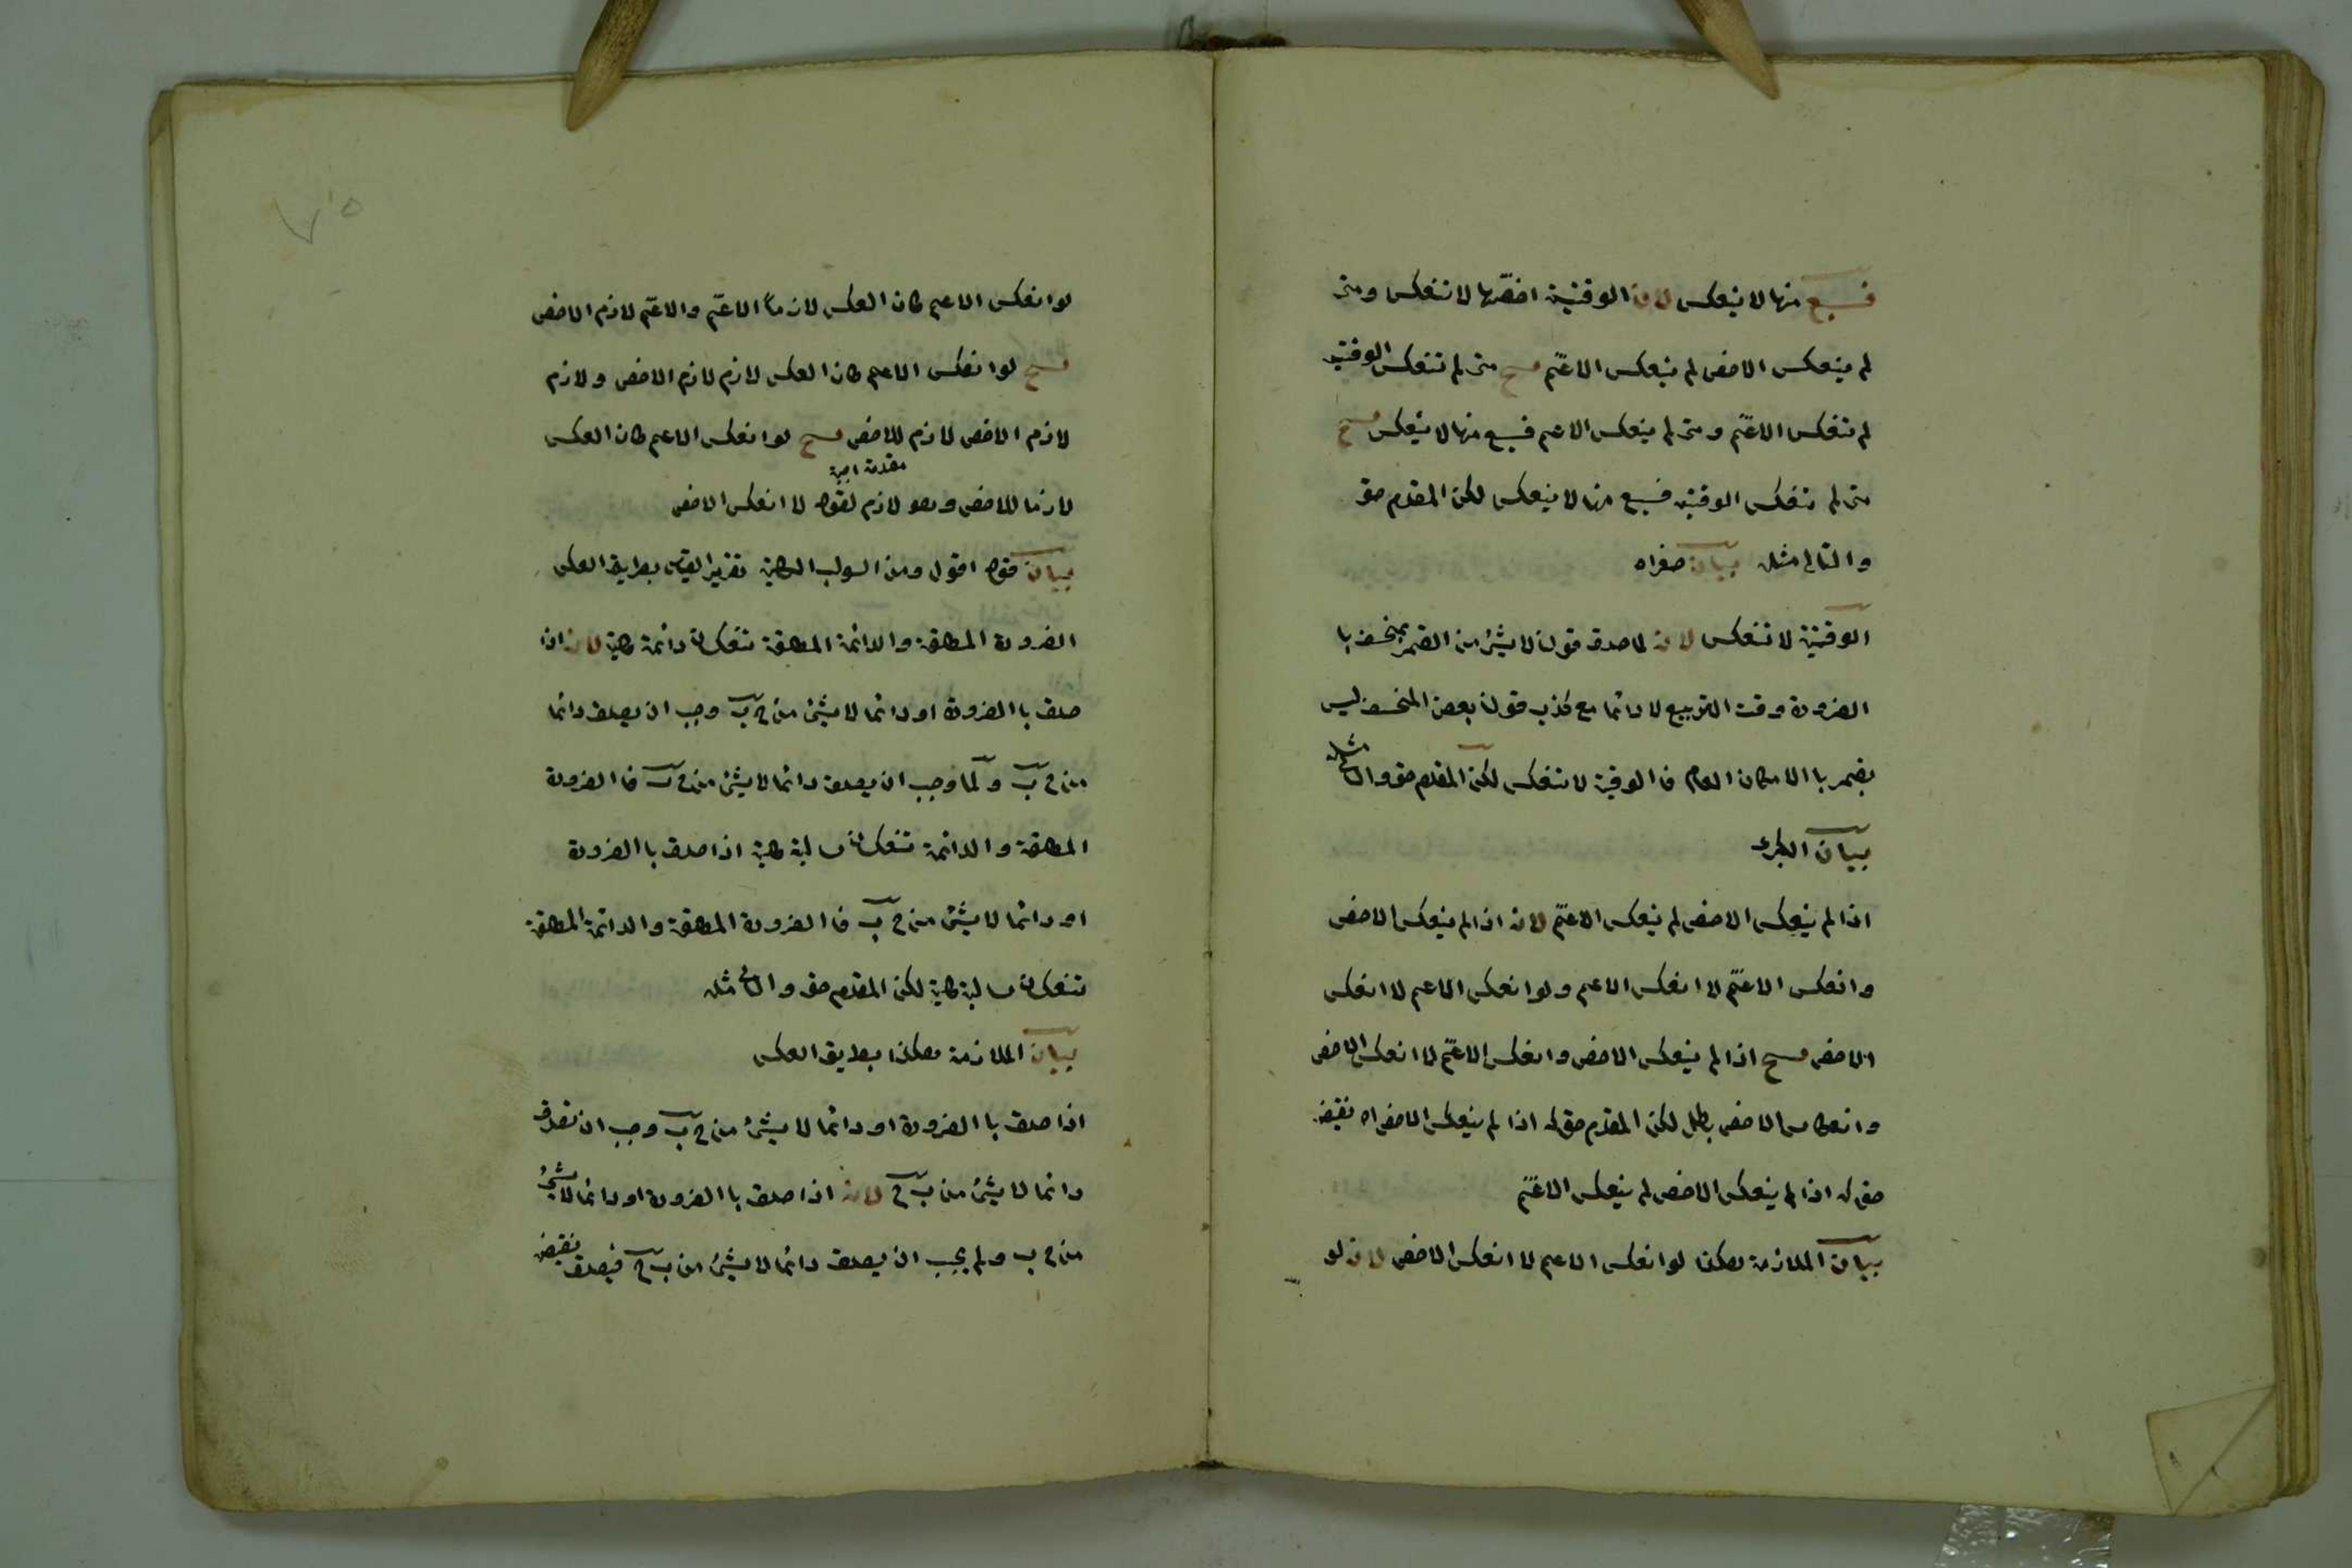 فسبع منها لا ينعكس لان الوقتية اخصّها لا تنعكس ومتى
لم ينعكس الاخص لم ينعكس الاعّم فح متى لم تنعكس الوقتيه
لم تنعكس الاعّم ومتى لم ينعكس الاعم فسبع منها لا ينعكس فح
متى لم تنعكس الوقتيه فسبع منها لا ينعكس لكن المقدم حق
والتالى مثله بيان صغراه
الوقتية لا تنعكس لانه لما صدق قولنا لا شئ من القمر بمنخسف با
الضرورة وقت التربيع لا دائما مع كذب قولنا بعض المنخسف ليس
بقمر با الامكان العام فا لوقتية لا تنعكس لكن المقدم حق والتالى مثله
بيان الكبرى
اذا لم ينعكس الاخص لم ينعكس الاعّم لانه اذا لم ينعكس الاخص
وانعكس الاعّم لا انعكس الاعم ولو انعكس الاعم لا انعكس
الاخص فح اذا لم ينعكس الاخص وانعكس الاعّم لا انعكس الاخص
وانعكاس الاخص بطل لكن المقدم حق له اذا لم ينعكس الاخص اه نقيض
حق له اذا لم ينعكس الاخص لم ينعكس الاعّم
بيان الملازمة هكذا لو انعكس الاعم لا انعكس الاخص لان لو
٧٥
لو انعكس الاعم كان العكس لازماً الاعّم والاعّم لازم الاخص
فح لو انعكس الاعم كان العكس لازم لازم الاخص ولازم
لازم الاخص لازم للاخص فح لو انعكس الاعم كان العكس
مقدمة اجنبية
لازما للاخص وهو لازم لقوله لا انعكس الاخص
بيان قوله اقول ومن السوالب الكلية تقرير القياس بطريق العكس
الضرورة المطلقة والدائمة المطلقة تنعكسان دائمة كلية لانه اذا
صدق با الضرورة او دائما لا شئ من ج ب وجب ان يصدق دائما
من ج ب ولمّا وجب ان يصدق دائما لا شئ من ج ب فا الضرورة
المطلقة والدائمة تنعكسان سالبة كلية اذا صدق با الضرورة
او دائما لا شئ من ج ب فا الضرورة المطلقة والدائمة المطلقة
تنعكسان سالبة كلية لكن المقدم حق والتالى مثله
بيان الملازمة هكذا بطريق العكس
اذا صدق با الضرورة او دائما لا شئ من ج ب وجب ان تصدق
دائما لا شئ من ب ج لانه اذا صدق با الضرورة او دائما لا شئ
من ج ب ولم يجب ان يصدق دائما لا شئ من ب ج فيصدق نقيض